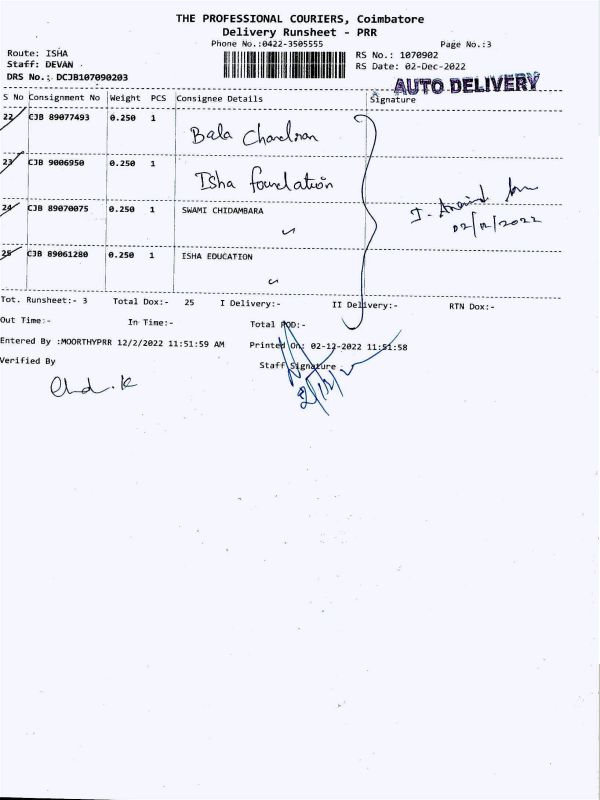 THE PROFESSIONAL COURIERS, Coimbatore
Delivery Runsheet - PRR
Phone No.:0422-3505555
Page No.:3
Route: ISHA
RS No.: 1070902
Staff: DEVAN
RS Date: 02-Dec-2022
DRS No.: DCJB107090203
AUTO DELIVERY
S No Consignment No Weight PCS Consignee Details Signature
22 CJB 89077493 0.250 1 Bala Chandran
23 CJB 9006950 0.250 1 Isha foundation
24 CJB 89070075 0.250 1 SWAMI CHIDAMBARA
02/12/2022
25 CJB 89061280 0.250 1 ISHA EDUCATION
Tot. Runsheet:- 3 Total Dox:- 25 I Delivery:- II Delivery:- RTN Dox:-
Out Time:- In Time:- Total POD:-
Entered By :MOORTHYPRR 12/2/2022 11:51:59 AM Printed On: 02-12-2022 11:51:58
Verified By Staff Signature